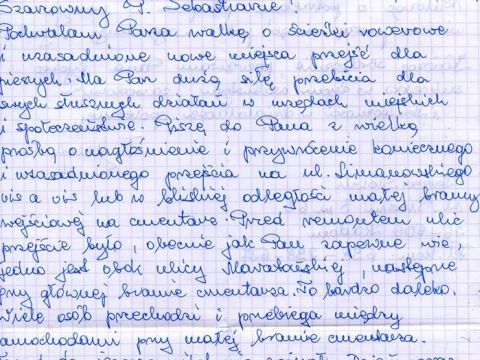 Szanowny P. Sebastianie!
Pochwalam Pana walkę o ścieżki rowerowe
i uzasadnione nowe miejsca przejść dla
pieszych. Ma Pan dużą siłę przebicia dla
swych słusznych działań w urzędach miejskich
i społeczeństwie. Piszę do Pana z wielką
prośbą o nagłośnienie i przywrócenie koniecznego
i uzasadnionego przejścia na ul. Limanowskiego
vis a vis lub w bliskiej odległości małej bramy
wejściowej na cmentarz. Przed remontem ulic
przejście było, obecnie jak Pan zapewne wie,
jedno jest obok ulicy Maratońskiej, następne
przy głównej bramie cmentarza. To bardzo daleko.
Wiele osób przechodzi i przebiega między
samochodami przy małej bramie cmentarza.